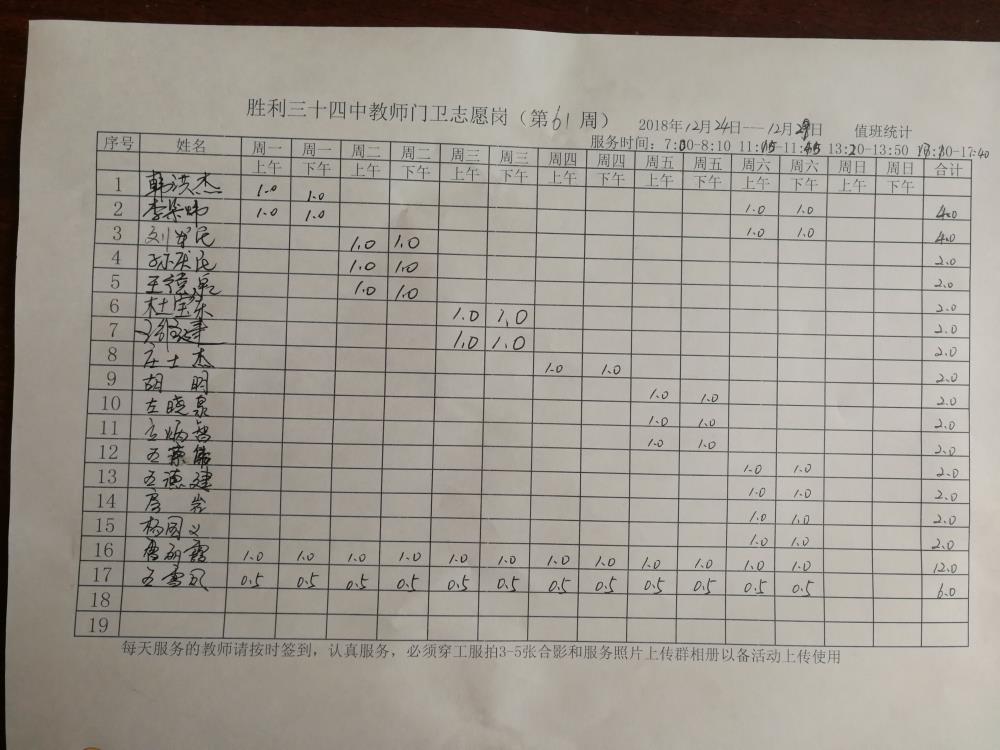 胜利三十四中教师门卫志愿岗（第61周） 2018年12月24日---12月29日 值班统计
服务时间：7:00-8:10 11:15-11:45 13:20-13:50 -17:40
序号 姓名 周一上午 周一下午 周二上午 周二下午 周三上午 周三下午 周四上午 周四下午 周五上午 周五下午 周六上午 周六下午 周日上午 周日下午 合计
1 韩洪杰 1.0 1.0 1.0 1.0 4.0
2 李 1.0 1.0 1.0 1.0 4.0
3 刘军民 1.0 1.0 2.0
4 孙庆民 1.0 1.0 2.0
5 王德泉 1.0 1.0 2.0
6 杜宝乐 1.0 1.0 2.0
7 1.0 1.0 2.0
8 庄士杰 1.0 1.0 2.0
9 胡明 1.0 1.0 2.0
10 左晓泉 1.0 1.0 2.0
11 炳智 1.0 1.0 2.0
12 王 1.0 1.0 2.0
13 王德建 1.0 1.0 2.0
14 岩 1.0 1.0 2.0
15 杨国义 1.0 1.0 2.0
16 曹丽霞 1.0 1.0 1.0 1.0 1.0 1.0 1.0 1.0 1.0 1.0 1.0 1.0 12.0
17 王 0.5 0.5 0.5 0.5 0.5 0.5 0.5 0.5 0.5 0.5 0.5 0.5 6.0
18
19
每天服务的教师请按时签到，认真服务，必须穿工服拍3-5张合影和服务照片上传群相册以备活动上传使用